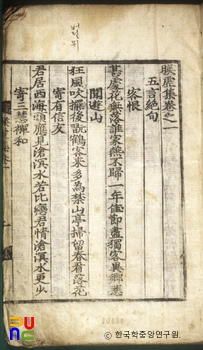 暎虛集卷之一
五言絶句
客恨
甚處花無落誰家燕不歸一年佳節盡獨客異鄉悲
遊山
狂風吹擺後鶴客來多爲禁山亭掃留春看落花
寄有信友
君居西海頭應見滄溟水若比戀君情滄溟水更少
寄三慧禪和
© 한국학중앙연구원